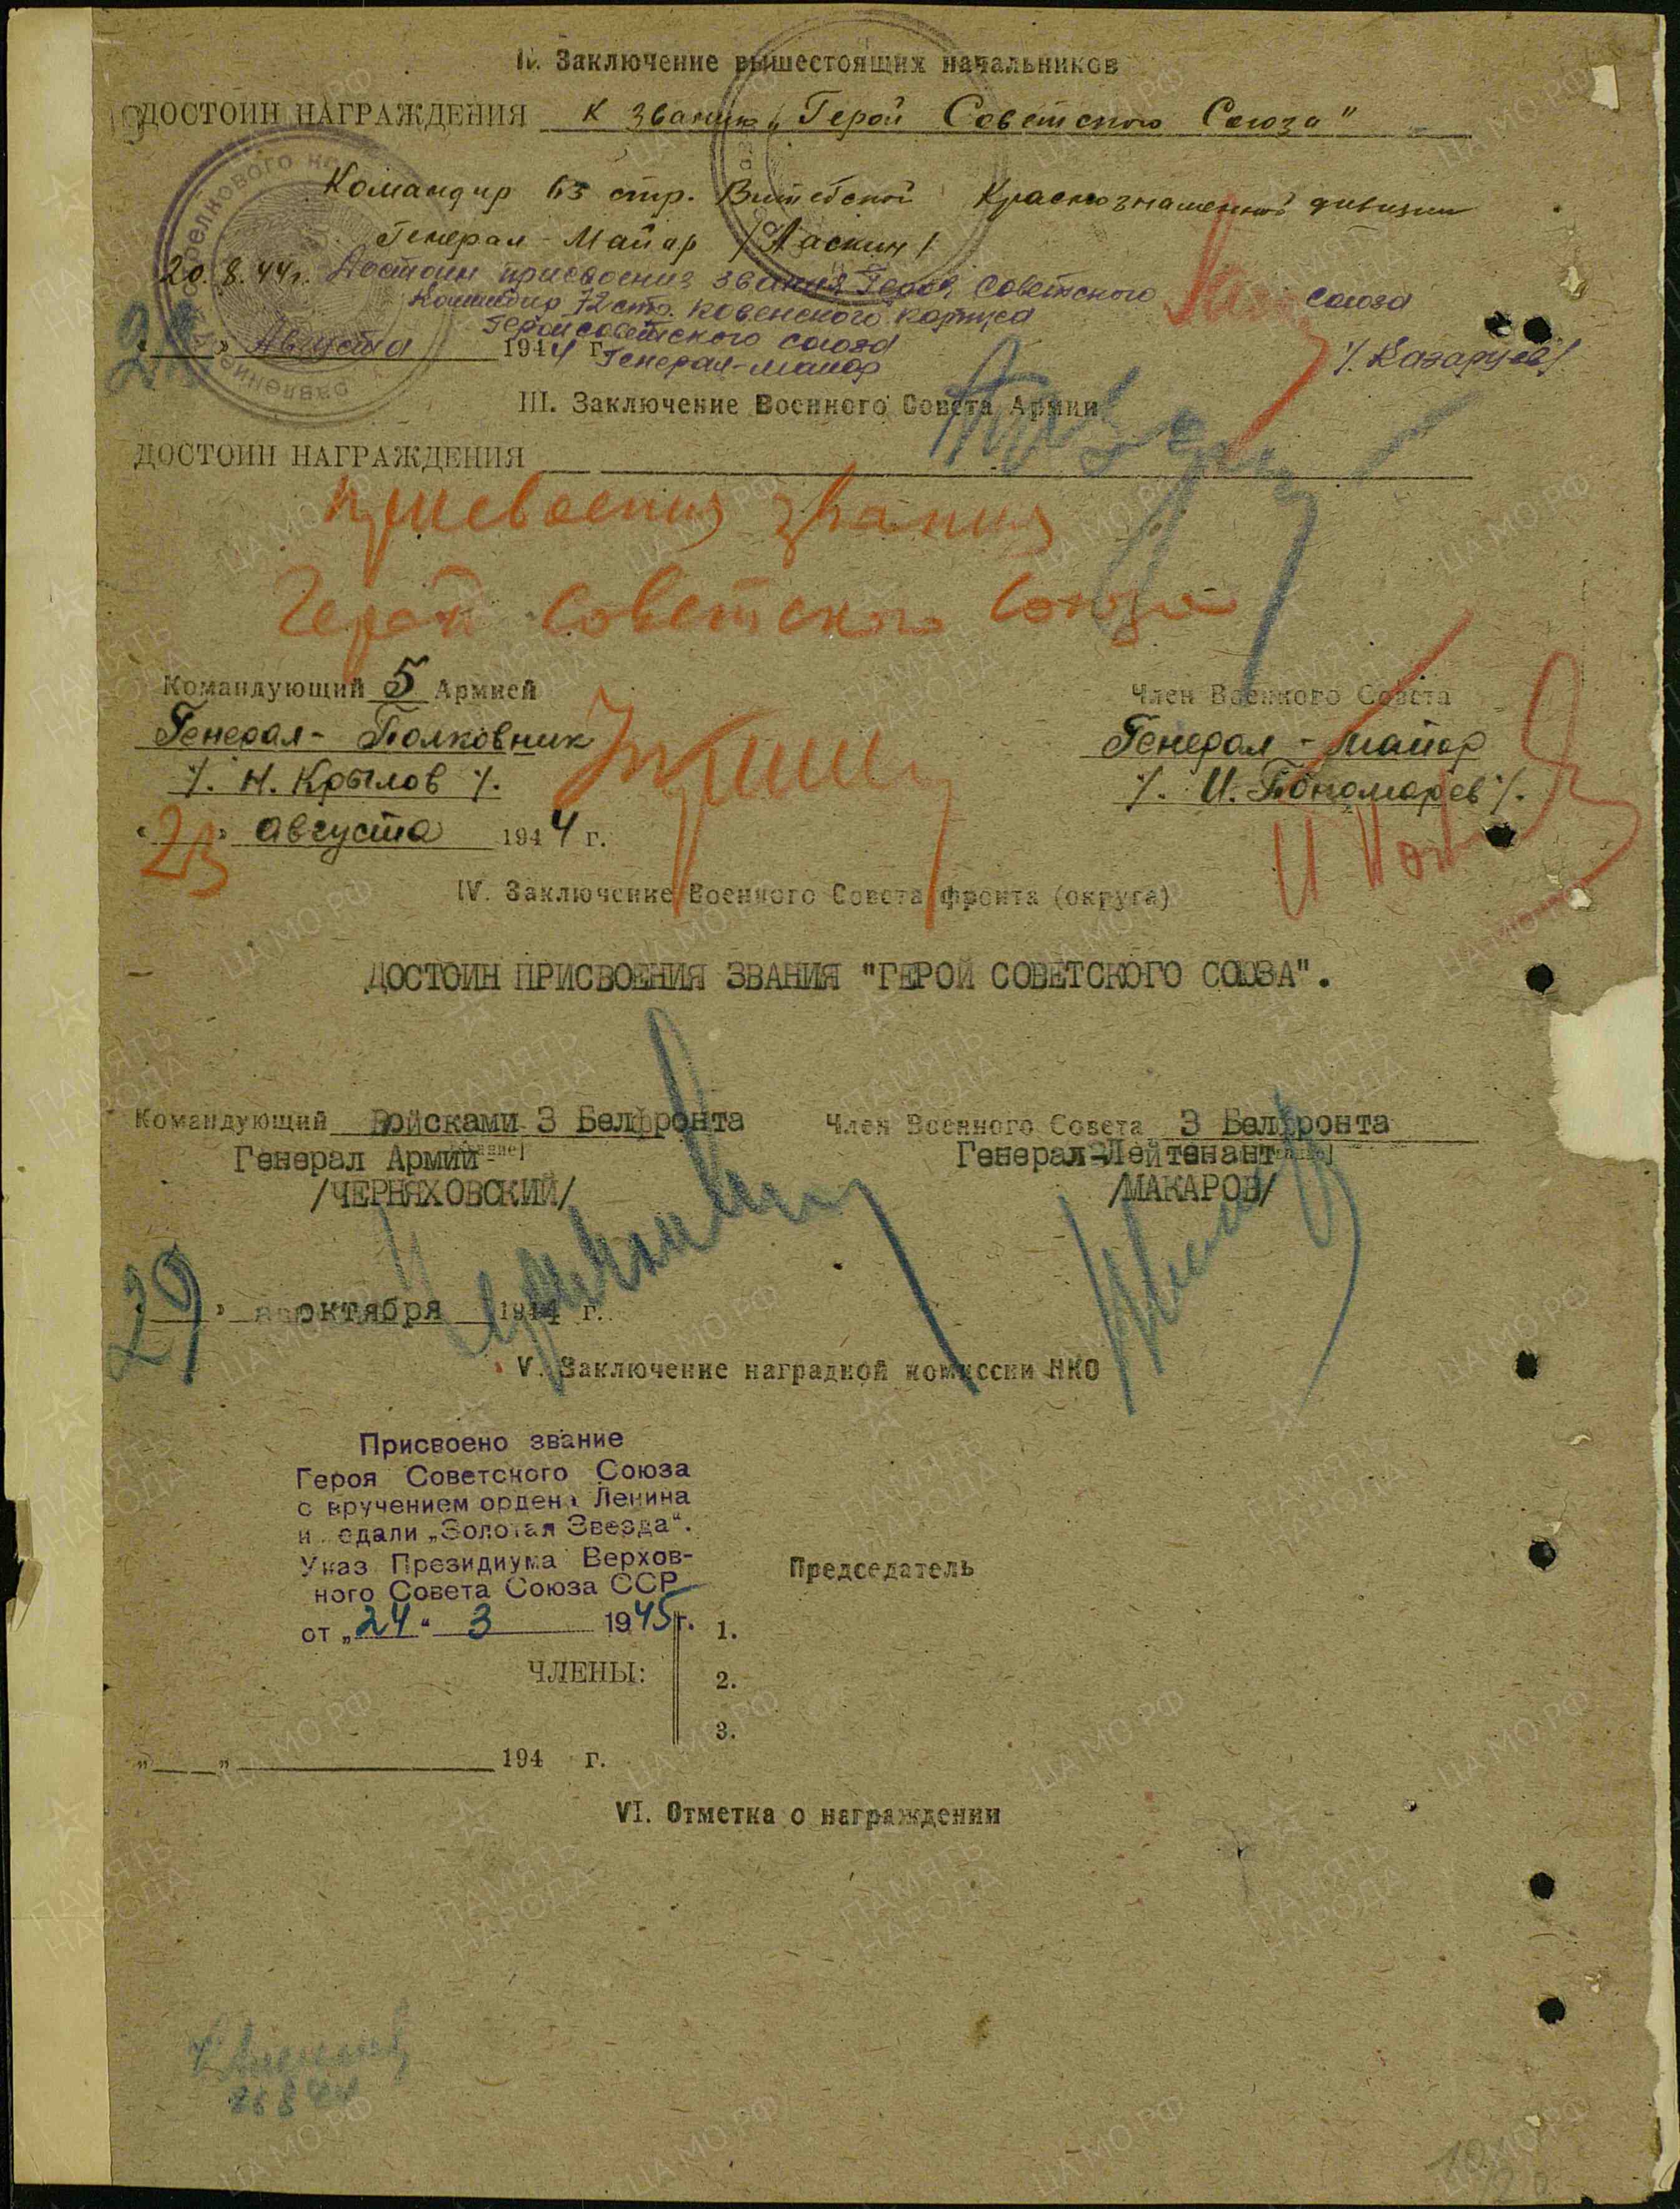 II. Заключение вышестоящих начальников
ДОСТОИН НАГРАЖДЕНИЯ к званию „Герой Советского Союза"
Командир 63 стр. Витебской Краснознаменной дивизии
Генерал-Майор /Ласкин/
20.8.44г. Достоин присвоения звания Героя Советского Союза
Командир 72 стр. Ковенского корпуса
Герой советского союза
Генерал-майор /. Казарцев/
" " Августа 1944 г.
III. Заключение Военного Совета Армии
ДОСТОИН НАГРАЖДЕНИЯ
присвоения звания
Герой Советского Союза
Командующий 5 Армией
Генерал-Полковник
/. Н. Крылов /.
"23" августа 1944 г.
Член Военного Совета
Генерал-майор
/. И. Пономарев /.
IV. Заключение Военного Совета фронта (округа)
ДОСТОИН ПРИСВОЕНИЯ ЗВАНИЯ "ГЕРОЙ СОВЕТСКОГО СОЮЗА".
Командующий Войсками 3 Белфронта
Генерал Армии
/ЧЕРНЯХОВСКИЙ/
Член Военного Совета 3 Белфронта
Генерал-Лейтенант
/МАКАРОВ/
"29" октября 1944 г.
V. Заключение наградной комиссии НКО
Присвоено звание
Героя Советского Союза
с вручением ордена Ленина
и едали „Золотая Звезда".
Указ Президиума Верхов-
ного Совета Союза ССР
от „24" 3 1945г.
Председатель
ЧЛЕНЫ:
1.
2.
3.
„ " 194 г.
VI. Отметка о награждении
26 8 44
ПАМЯТЬ НАРОДА
ЦА МО РФ